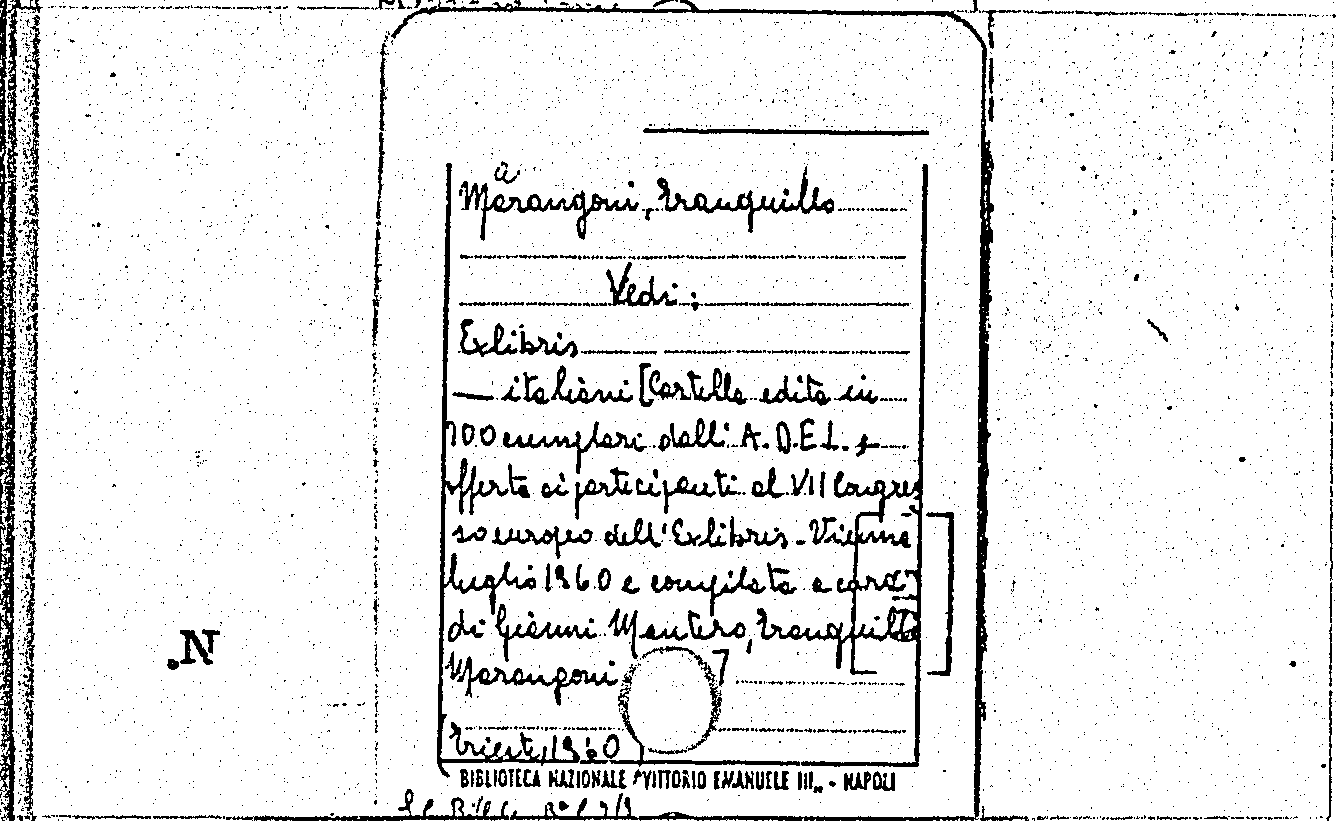 Marangoni, Tranquillo
Vedi:
Exlibris
— italiani [Cartella edita in
100 esemplari dall' A.D.E.L. e
offerta ai partecipanti al VII Congres
so europeo dell'Exlibris - Vienna
luglio 1960 e compilata a cura
di Gianni Mantero, Tranquillo
Marangoni ]
Trieste, 1960
BIBLIOTECA NAZIONALE "VITTORIO EMANUELE III„ - NAPOLI
.N